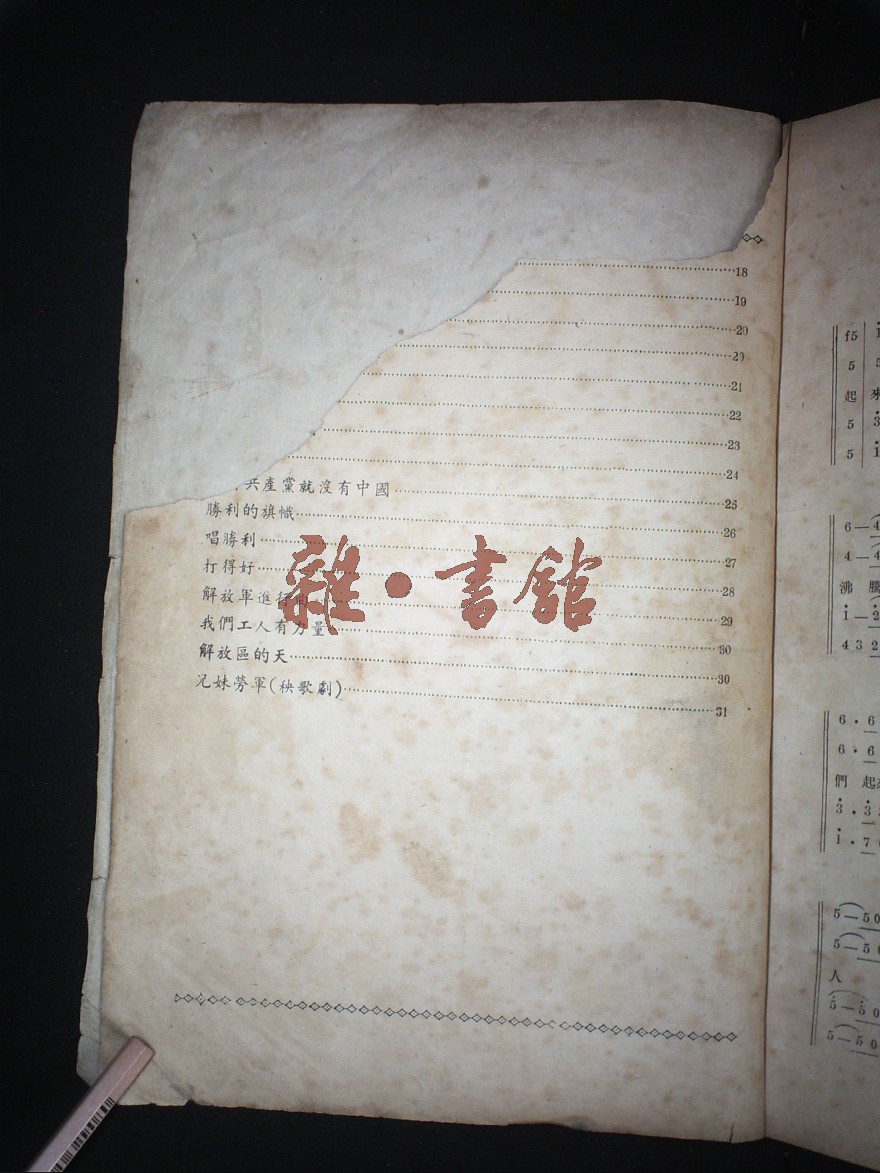 18
19
20
20
21
22
23
24
共產黨就沒有中國 25
勝利的旗幟 26
唱勝利 27
打得好 28
解放軍進行曲 29
我們工人有力量 30
解放區的天 30
兄妹勞軍(秧歌劇) 31
雜·書館
f5
5 5
起 來
5 3
5 1
6 — 4
4 — 4
沸 騰
1 — 2
4 3 2
6 · 6
6 · 6
們 起來
3 · 3
1 · 7
5 — 5 0
5 — 5 0
人
5 — 5 0
5 — 5 0